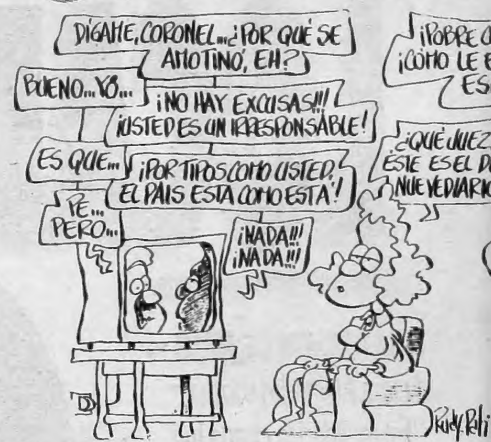 DÍGAME, CORONEL... ¿POR QUÉ SE
AMOTINÓ, EH?
BUENO... YO...
¡NO HAY EXCUSAS!!!
¡USTED ES UN IRRESPONSABLE!
ES QUE...
¡POR TIPOS COMO USTED,
EL PAIS ESTA COMO ESTA'!
PE...
PERO...
¡NADA!!!
¡NADA!!!
¡POBRE
¡CÓMO LE
¿QUÉ JUEZ
ÉSTE ES EL
NUEVEDIARIO
Rudy. Pati